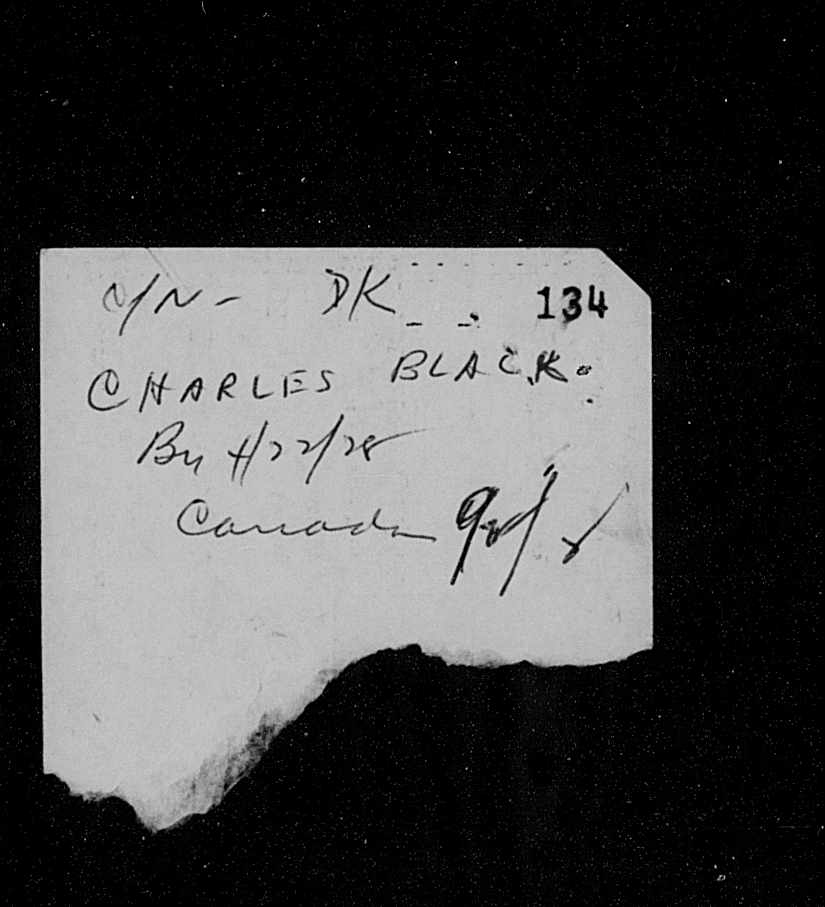 C/N - DK 134
CHARLES BLACK.
By 4/22/28
Canada